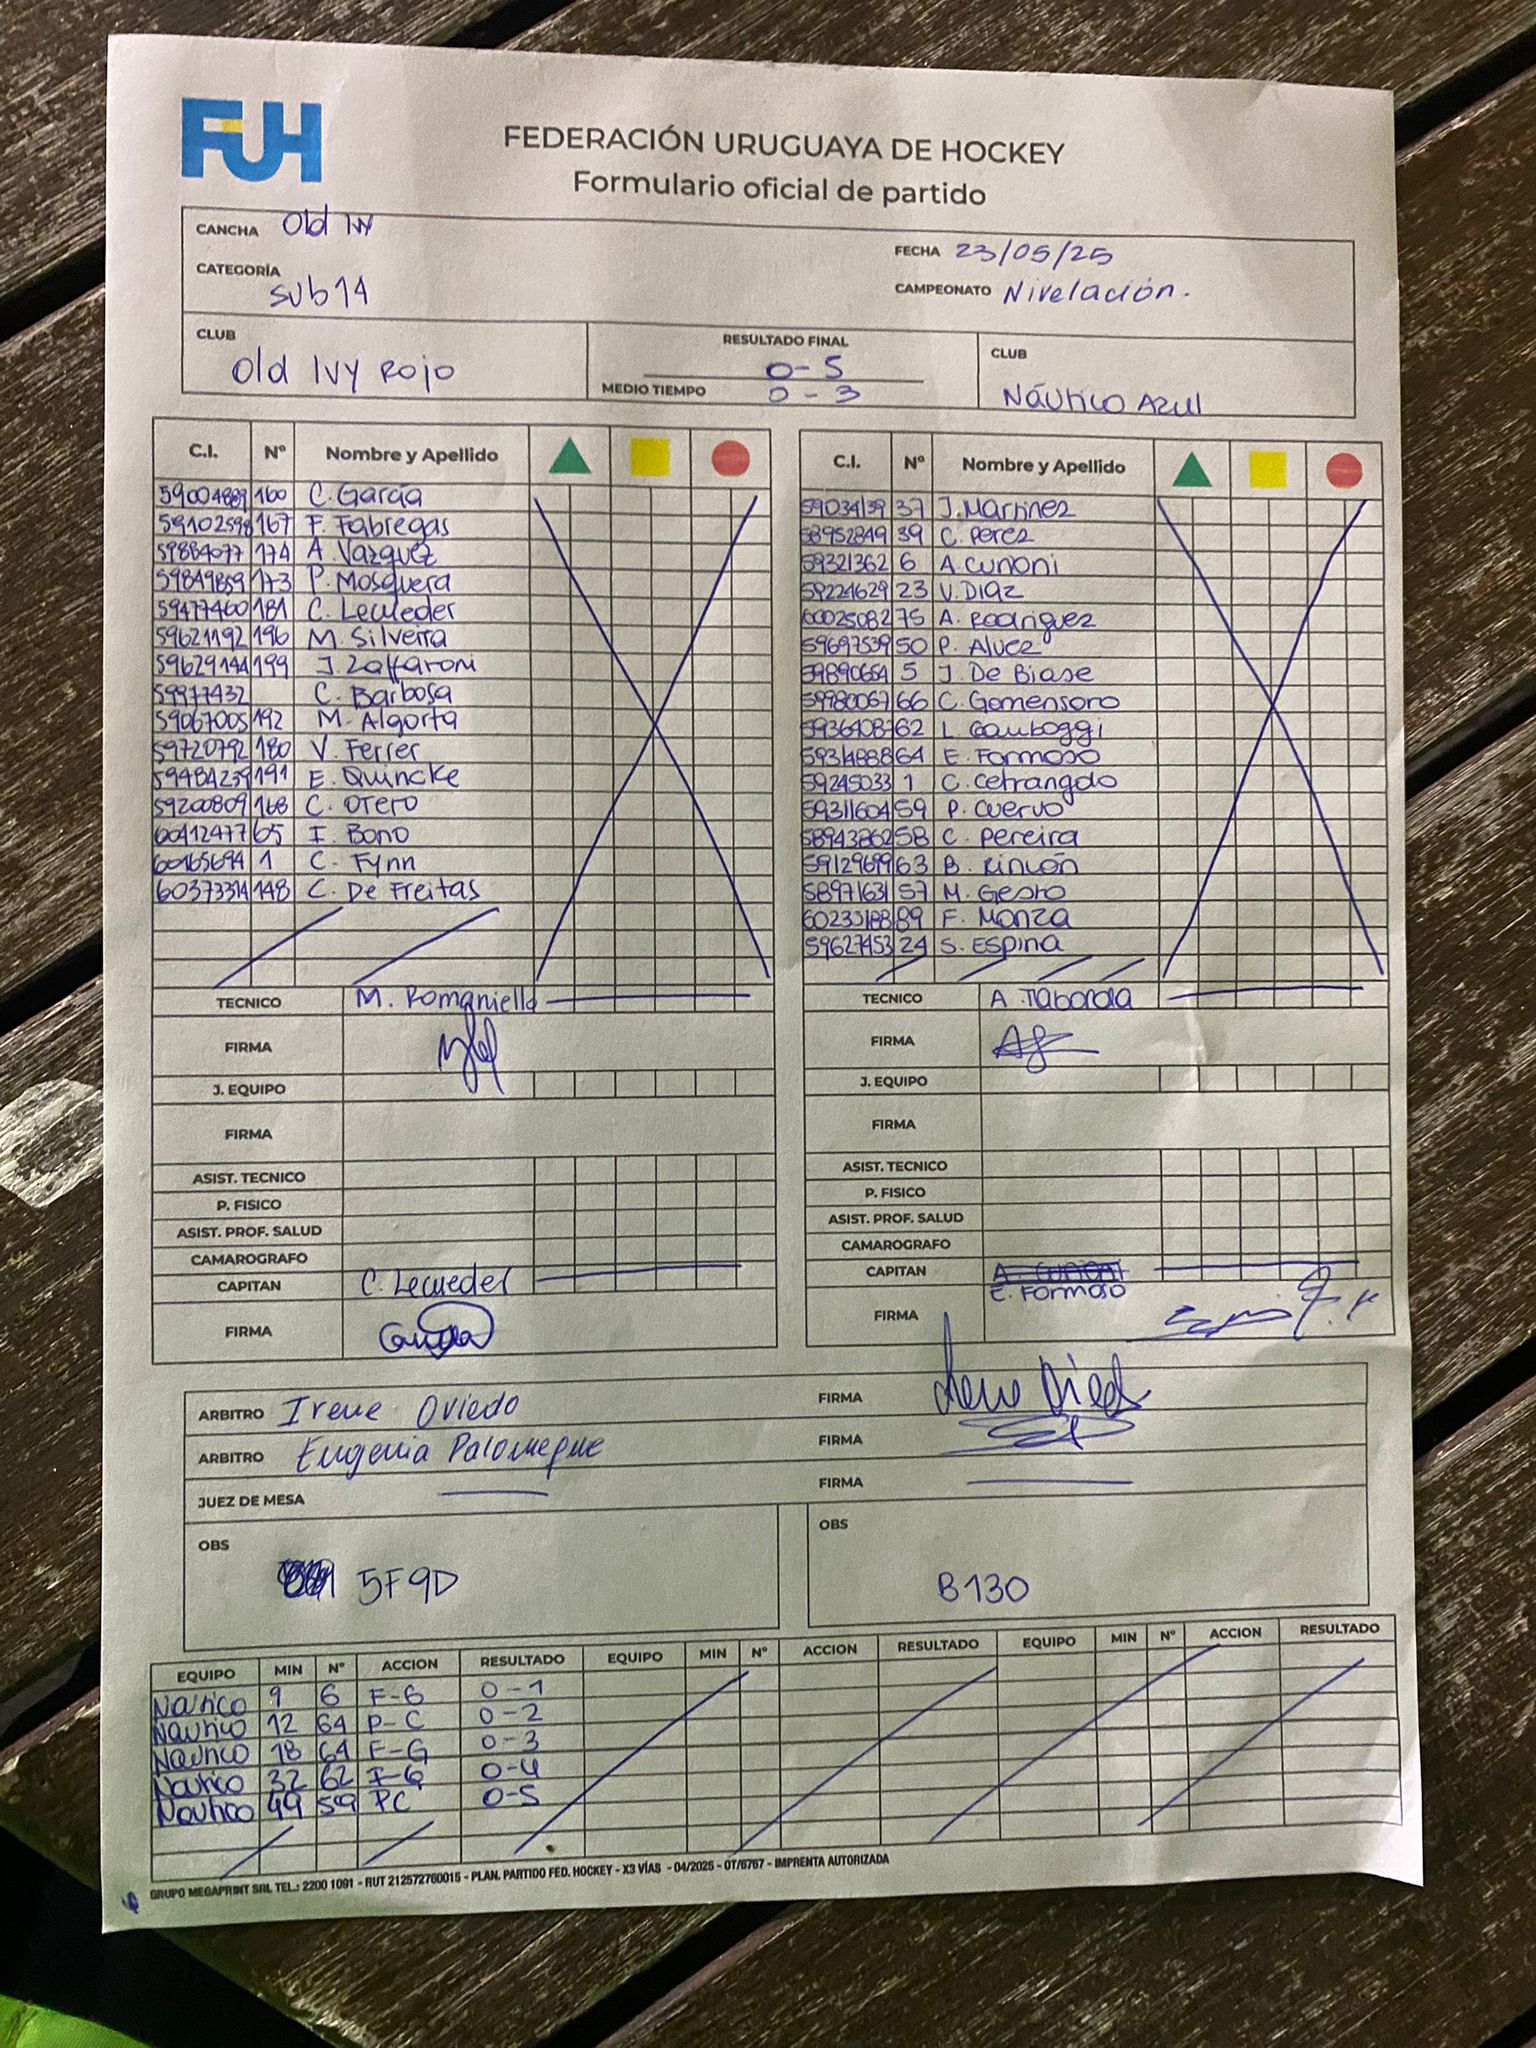 FUH
FEDERACIÓN URUGUAYA DE HOCKEY
Formulario oficial de partido
CANCHA Old Ivy
FECHA 23/05/25
CATEGORÍA Sub14
CAMPEONATO Nivelación.
CLUB Old IVY Rojo
RESULTADO FINAL 0-5
MEDIO TIEMPO 0-3
CLUB Náutico Azul
C.I. Nº Nombre y Apellido
59004889 160 C. García
59102598 167 F. Fabregas
59884077 174 A. Vazquez
59849859 173 P. Mosquera
59477460 181 C. Lecueder
59621192 196 M. Silveira
59629144 199 J. Zaffaroni
59977432 C. Barbosa
59067005 192 M. Algorta
59720792 180 V. Ferrer
59484239 191 E. Quincke
59200809 168 C. Otero
60412477 65 I. Bono
60165694 1 C. Fynn
60373314 148 C. De Freitas
TECNICO M. Romaniello
FIRMA
J. EQUIPO
FIRMA
ASIST. TECNICO
P. FISICO
ASIST. PROF. SALUD
CAMAROGRAFO
CAPITAN C. Lecueder
FIRMA
C.I. Nº Nombre y Apellido
59034139 37 J. Martinez
58952849 39 C. Perez
59321362 6 A. Cunoni
59224629 23 V. Diaz
60025082 75 A. Rodriguez
59697539 50 P. Alvez
59890654 5 J. De Biase
59980067 66 C. Gomensoro
59364087 62 L. Gamboggi
59314888 64 E. Formoso
59245033 1 C. Cetrangolo
59311604 59 P. Cuervo
58943862 58 C. Pereira
59129699 63 B. Rincón
58971631 57 M. Gesto
60233188 89 F. Monza
59627453 24 S. Espina
TECNICO A. Taborda
FIRMA
J. EQUIPO
FIRMA
ASIST. TECNICO
P. FISICO
ASIST. PROF. SALUD
CAMAROGRAFO
CAPITAN
E. Formoso
FIRMA
ARBITRO Irene Oviedo FIRMA
ARBITRO Eugenia Palomeque FIRMA
JUEZ DE MESA FIRMA
OBS 5F9D
OBS B130
EQUIPO MIN Nº ACCION RESULTADO EQUIPO MIN Nº ACCION RESULTADO EQUIPO MIN Nº ACCION RESULTADO
Nautico 9 6 F-G 0-1
Nautico 12 64 P-C 0-2
Nautico 18 64 F-G 0-3
Nautico 32 62 F-G 0-4
Nautico 49 59 PC 0-5
GRUPO MEGAPRINT SRL TEL.: 2200 1091 - RUT 212572760015 - PLAN. PARTIDO FED. HOCKEY - X3 VÍAS - 04/2025 - OT/6767 - IMPRENTA AUTORIZADA